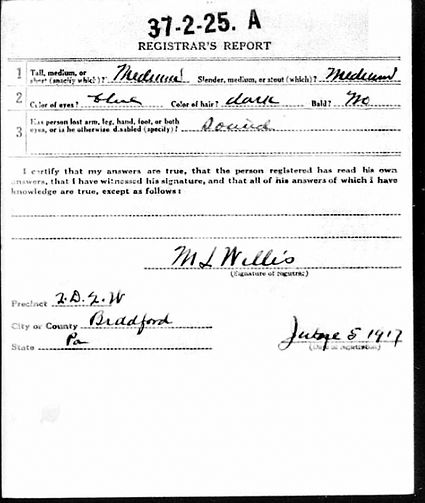 37-2-25. A
REGISTRAR'S REPORT
1 Tall, medium, or short (specify which)? Medium Slender, medium, or stout (which)? Medium
2 Color of eyes? blue Color of hair? dark Bald? No
3 Has person lost arm, leg, hand, foot, or both eyes, or is he otherwise disabled (specify)? Sound
I certify that my answers are true, that the person registered has read his own
answers, that I have witnessed his signature, and that all of his answers of which I have
knowledge are true, except as follows:
M L Willis
(Signature of registrar)
Precinct 2. D. 2. W
City or County Bradford
State Pa
June 5 1917
(Date of registration)